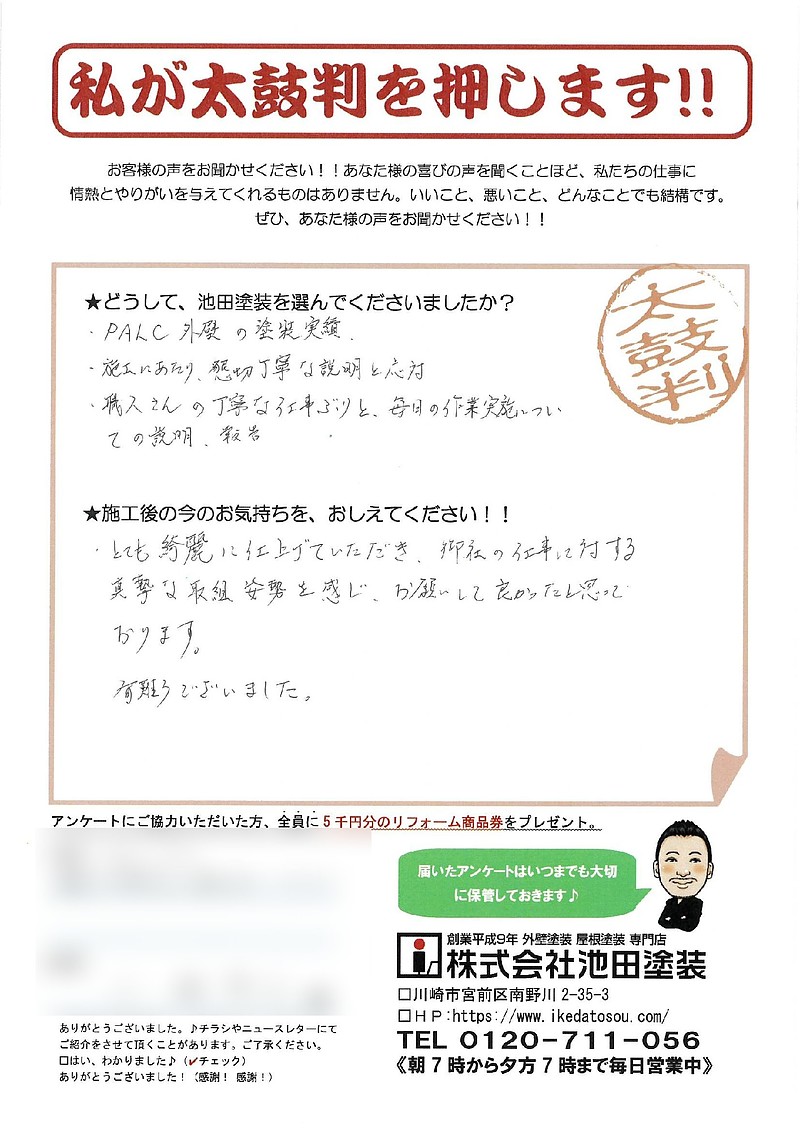 私が太鼓判を押します!!
お客様の声をお聞かせください！！あなた様の喜びの声を聞くことほど、私たちの仕事に
情熱とやりがいを与えてくれるものはありません。いいこと、悪いこと、どんなことでも結構です。
ぜひ、あなた様の声をお聞かせください！！
太鼓判
★どうして、池田塗装を選んでくださいましたか？
・PALC外壁の塗装実績.
・施工にあたり、懇切丁寧な説明と応対
・職人さんの丁寧な仕事ぶりと、毎日の作業実施につい
ての説明、報告
★施工後の今のお気持ちを、おしえてください！！
・とても綺麗に仕上げていただき、御社の仕事に対する
真摯な取組姿勢を感じ、お願いして良かったと思って
おります。
有難うございました。
アンケートにご協力いただいた方、全員に5千円分のリフォーム商品券をプレゼント。
届いたアンケートはいつまでも大切
に保管しておきます♪
創業平成9年 外壁塗装 屋根塗装 専門店
株式会社池田塗装
□川崎市宮前区南野川 2-35-3
□ＨＰ:https://www.ikedatosou.com/
TEL 0120-711-056
《朝7時から夕方7時まで毎日営業中》
ありがとうございました。♪チラシやニュースレターにて
ご紹介をさせて頂くことがあります。ご了承ください。
□はい、わかりました♪（✓チェック）
ありがとうございました！（感謝！感謝！）